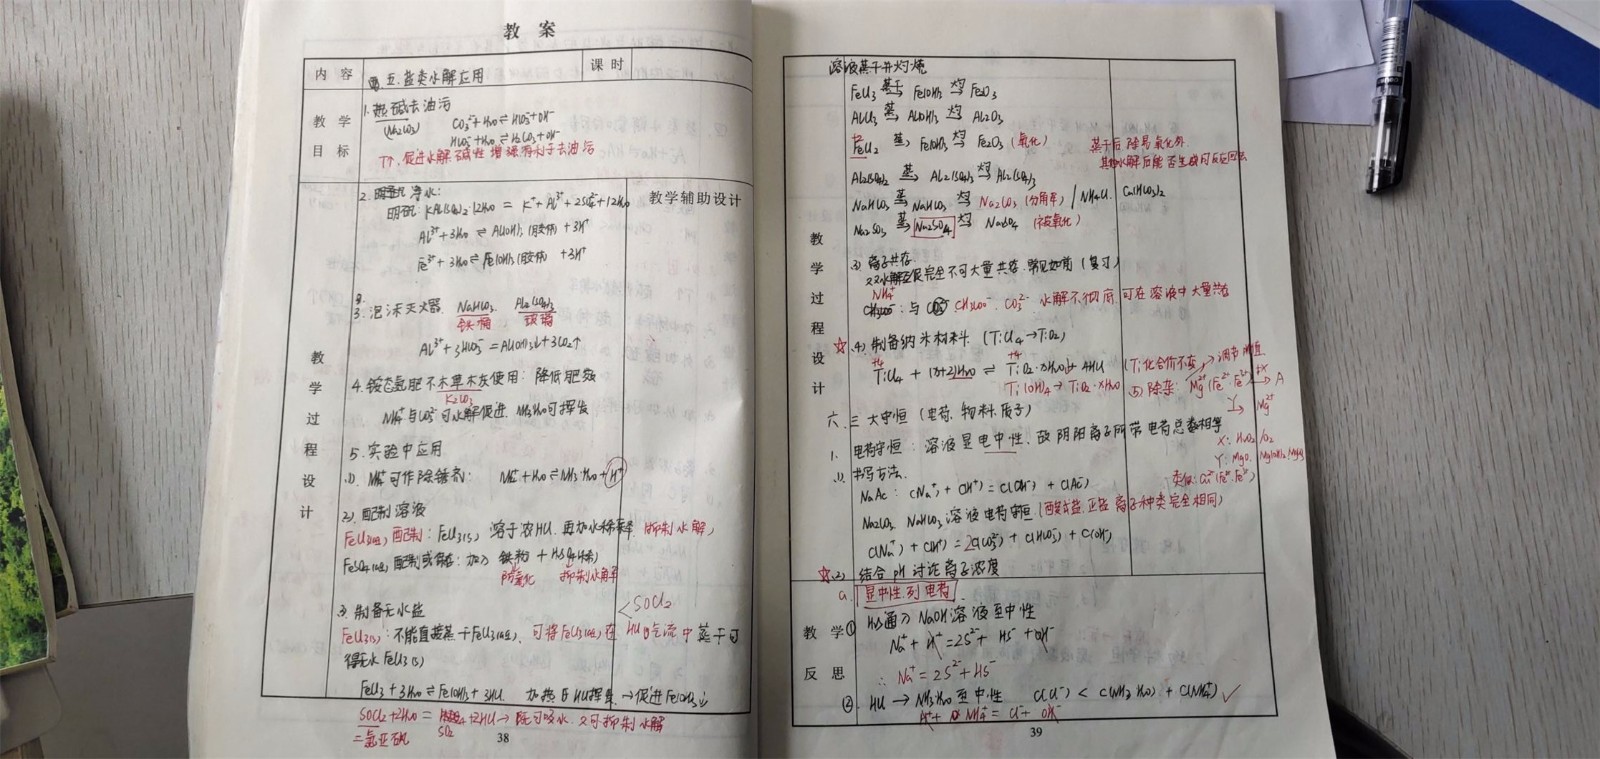 教 案
内 容
五.盐类水解应用
课 时
教 学
目 标
1.热碱去油污
(Na₂CO₃)
CO₃²⁻+H₂O⇌HCO₃⁻+OH⁻
HCO₃⁻+H₂O⇌H₂CO₃+OH⁻
T↑,促进水解 碱性增强有利于去油污
教学辅助设计
教 学 过 程 设 计
2.明矾净水:
明矾:KAl(SO₄)₂·12H₂O = K⁺+Al³⁺+2SO₄²⁻+12H₂O
Al³⁺+3H₂O⇌Al(OH)₃(胶体)+3H⁺
Fe³⁺+3H₂O⇌Fe(OH)₃(胶体)+3H⁺
3.泡沫灭火器 NaHCO₃ Al₂(SO₄)₃
铁桶
Al³⁺+3HCO₃⁻=Al(OH)₃↓+3CO₂↑
4.铵态氮肥不与草木灰使用:降低肥效
K₂CO₃
NH₄⁺与CO₃²⁻可水解促进,NH₃·H₂O可挥发
5.实验中应用
(1).NH₄⁺可作除锈剂: NH₄⁺+H₂O⇌NH₃·H₂O+H⁺
(2).配制溶液
FeCl₃(aq)配制:FeCl₃(s),溶于浓HCl,再加水稀释,抑制水解,
FeSO₄(aq)配制或保存:加入铁粉+H₂SO₄(稀)
防氧化 抑制水解
(3).制备无水盐
<SOCl₂
FeCl₃(s):不能直接蒸干FeCl₃(aq),可将FeCl₃(aq)在HCl气流中蒸干可
得无水FeCl₃(s)
FeCl₃+3H₂O⇌Fe(OH)₃+3HCl 加热后HCl挥发→促进Fe(OH)₃↓
SOCl₂+H₂O=SO₂+2HCl→既可吸水,又可抑制水解
二氯亚砜
38
溶液蒸干并灼烧
FeCl₃ 蒸干→ Fe(OH)₃ 灼→ Fe₂O₃
AlCl₃ 蒸→ Al(OH)₃ 灼→ Al₂O₃
FeCl₂ 蒸→ Fe(OH)₃ 灼→ Fe₂O₃(氧化)
蒸干后除易氧化外
其他水解后能否生成可反应回去
Al₂(SO₄)₃ 蒸→ Al₂(SO₄)₃ 灼→ Al₂(SO₄)₃
NaHCO₃ 蒸→ NaHCO₃ 灼→ Na₂CO₃(分解率)/NH₄Cl. Ca(HCO₃)₂
Na₂SO₃ 蒸→ Na₂SO₄ 灼→ Na₂SO₄(被氧化)
教 学 过 程 设 计
(3)离子共存
双水解至促完全不可大量共存,常见如前(复习)
NH₄⁺:与 CH₃COO⁻ CO₃²⁻ 水解不彻底,可在溶液中大量共存
☆(4)制备纳米材料(TiCl₄→TiO₂)
+4 +4
TiCl₄+(x+2)H₂O⇌TiO₂·xH₂O↓+4HCl (Ti化合价不变)
Ti(OH)₄→TiO₂·xH₂O
(5)除杂:Mg²⁺(Fe²⁺ Fe³⁺) +X→ A
→调节pH值
Y→ Mg²⁺
六.三大守恒(电荷.物料.质子)
1.电荷守恒:溶液显电中性,故阴阳离子所带电荷总数相等
X:H₂O₂/O₂
Y:MgO.Mg(OH)₂
类似:Cu²⁺(Fe²⁺ Fe³⁺)
(1)书写方法
NaAc: c(Na⁺)+c(H⁺)=c(OH⁻)+c(Ac⁻)
Na₂CO₃、NaHCO₃溶液电荷守恒(酸式盐,正盐离子种类完全相同)
c(Na⁺)+c(H⁺)=2c(CO₃²⁻)+c(HCO₃⁻)+c(OH⁻)
☆(2)结合pH讨论离子浓度
a. 显中性.列电荷
教 学
反 思
①H₂S通入NaOH溶液至中性
Na⁺+H⁺=2S²⁻+HS⁻+OH⁻
∴Na⁺=2S²⁻+HS⁻
②HCl→NH₃·H₂O至中性 c(Cl⁻)<c(NH₃·H₂O)+c(NH₄⁺)✓
H⁺+NH₄⁺=Cl⁻+OH⁻
39